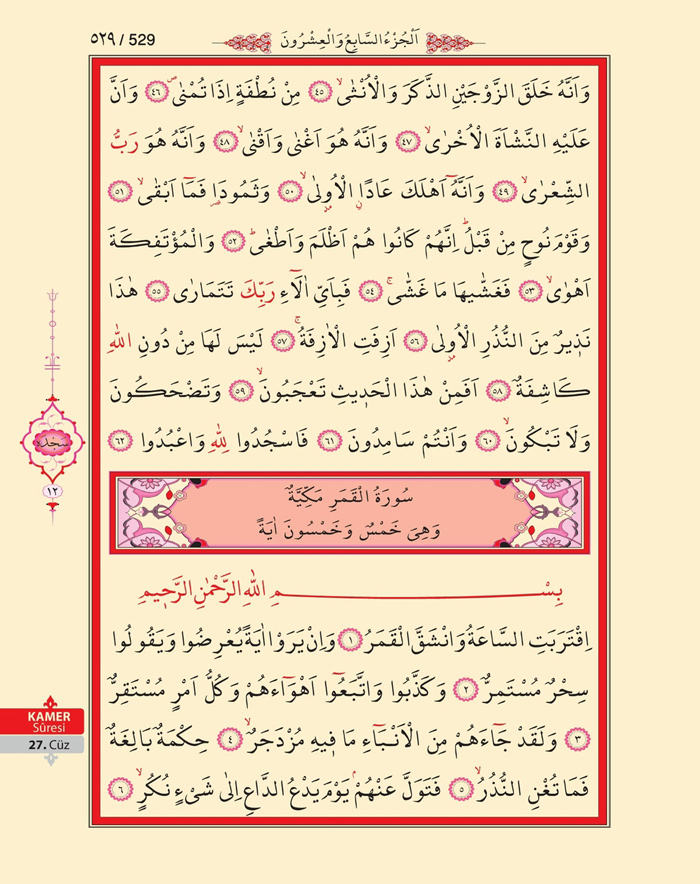 ٥٢٩ / 529
اَلْجُزْءُ السَّابِعُ وَالْعِشْرُونَ
وَاَنَّهُ خَلَقَ الزَّوْجَيْنِ الذَّكَرَ وَالْاُنْثٰىۙ ﴿٤٥﴾ مِنْ نُطْفَةٍ اِذَا تُمْنٰىۖ ﴿٤٦﴾ وَاَنَّ
عَلَيْهِ النَّشْاَةَ الْاُخْرٰىۙ ﴿٤٧﴾ وَاَنَّهُ هُوَ اَغْنٰى وَاَقْنٰىۙ ﴿٤٨﴾ وَاَنَّهُ هُوَ رَبُّ
الشِّعْرٰىۙ ﴿٤٩﴾ وَاَنَّهُٓ اَهْلَكَ عَادًا الْاُو۫لٰىۙ ﴿٥٠﴾ وَثَمُودَا۬ فَمَٓا اَبْقٰىۙ ﴿٥١﴾
وَقَوْمَ نُوحٍ مِنْ قَبْلُۜ اِنَّهُمْ كَانُوا هُمْ اَظْلَمَ وَاَطْغٰىۜ ﴿٥٢﴾ وَالْمُؤْتَفِكَةَ
اَهْوٰىۙ ﴿٥٣﴾ فَغَشّٰيهَا مَا غَشّٰىۚ ﴿٥٤﴾ فَبِاَيِّ اٰلَٓاءِ رَبِّكَ تَتَمَارٰى ﴿٥٥﴾ هٰذَا
نَذ۪يرٌ مِنَ النُّذُرِ الْاُو۫لٰى ﴿٥٦﴾ اَزِفَتِ الْاٰزِفَةُۚ ﴿٥٧﴾ لَيْسَ لَهَا مِنْ دُونِ اللّٰهِ
كَاشِفَةٌۜ ﴿٥٨﴾ اَفَمِنْ هٰذَا الْحَد۪يثِ تَعْجَبُونَۙ ﴿٥٩﴾ وَتَضْحَكُونَ
وَلَا تَبْكُونَۙ ﴿٦٠﴾ وَاَنْتُمْ سَامِدُونَ ﴿٦١﴾ فَاسْجُدُوا لِلّٰهِ وَاعْبُدُوا ﴿٦٢﴾
سجده
١٢
سُورَةُ الْقَمَرِ مَكِّيَّةٌ
وَهِيَ خَمْسٌ وَخَمْسُونَ اٰيَةً
بِسْمِ اللّٰهِ الرَّحْمٰنِ الرَّح۪يمِ
اِقْتَرَبَتِ السَّاعَةُ وَانْشَقَّ الْقَمَرُ ﴿١﴾ وَاِنْ يَرَوْا اٰيَةً يُعْرِضُوا وَيَقُولُوا
سِحْرٌ مُسْتَمِرٌّ ﴿٢﴾ وَكَذَّبُوا وَاتَّبَعُٓوا اَهْوَٓاءَهُمْ وَكُلُّ اَمْرٍ مُسْتَقِرٌّ
﴿٣﴾ وَلَقَدْ جَٓاءَهُمْ مِنَ الْاَنْبَٓاءِ مَا ف۪يهِ مُزْدَجَرٌۙ ﴿٤﴾ حِكْمَةٌ بَالِغَةٌ
فَمَا تُغْنِ النُّذُرُۙ ﴿٥﴾ فَتَوَلَّ عَنْهُمْۢ يَوْمَ يَدْعُ الدَّاعِ اِلٰى شَيْءٍ نُكُرٍۙ ﴿٦﴾
KAMER
Sûresi
27. Cüz